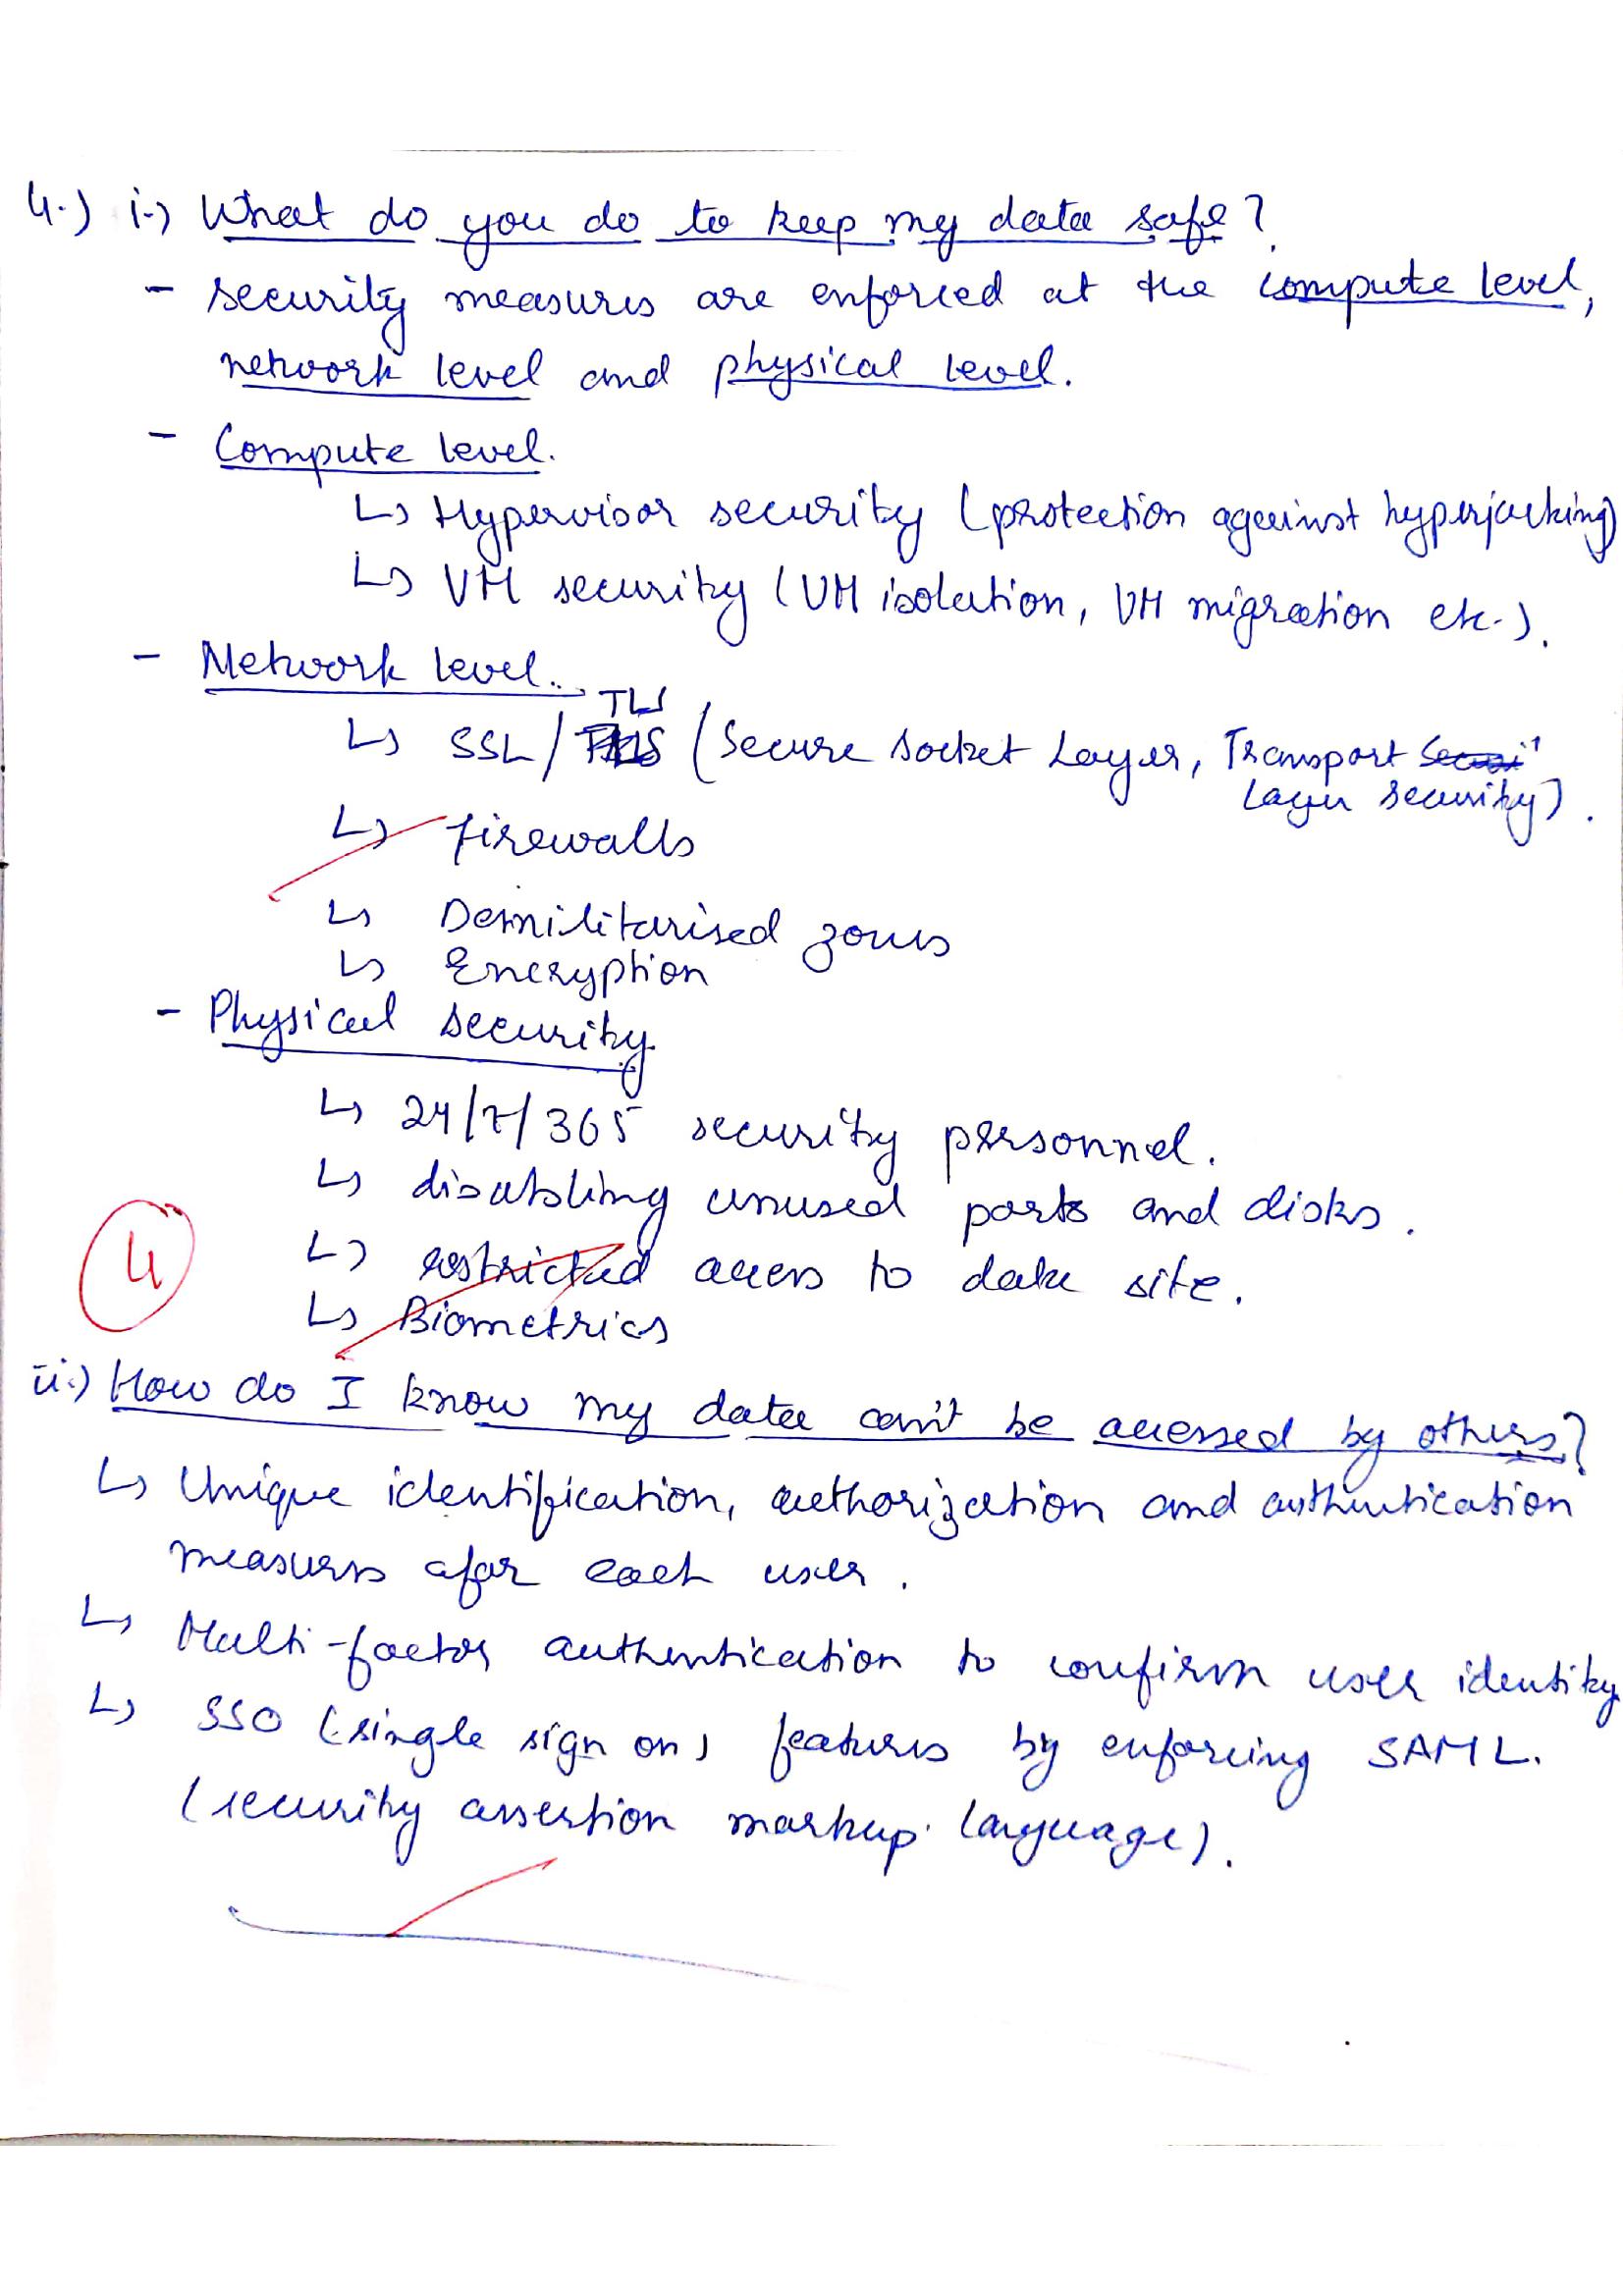 4.) i.) What do you do to keep my data safe?
- security measures are enforced at the compute level,
network level and physical level.
- Compute level.
↳ Hypervisor security (protection against hyperjacking)
↳ VM security (VM isolation, VM migration etc.).
- Network level.
TLS
↳ SSL/ (Secure Socket Layer, Transport
Layer security).
↳ firewalls
↳ Demilitarised zones
↳ Encryption
- Physical security
↳ 24/7/365 security personnel.
↳ disabling unused ports and disks.
↳ restricted access to data site.
4
↳ Biometrics
ii.) How do I know my data can't be accessed by others?
↳ Unique identification, authorization and authentication
measures for each user.
↳ Multi-factor authentication to confirm user identity
↳ SSO (single sign on) features by enforcing SAML.
(security assertion markup language).